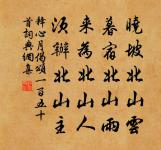 曉披北山雲
暮宿北山雨
來為北山人
須辦北山主
釋心月偈頌一百五十
首詞典網集